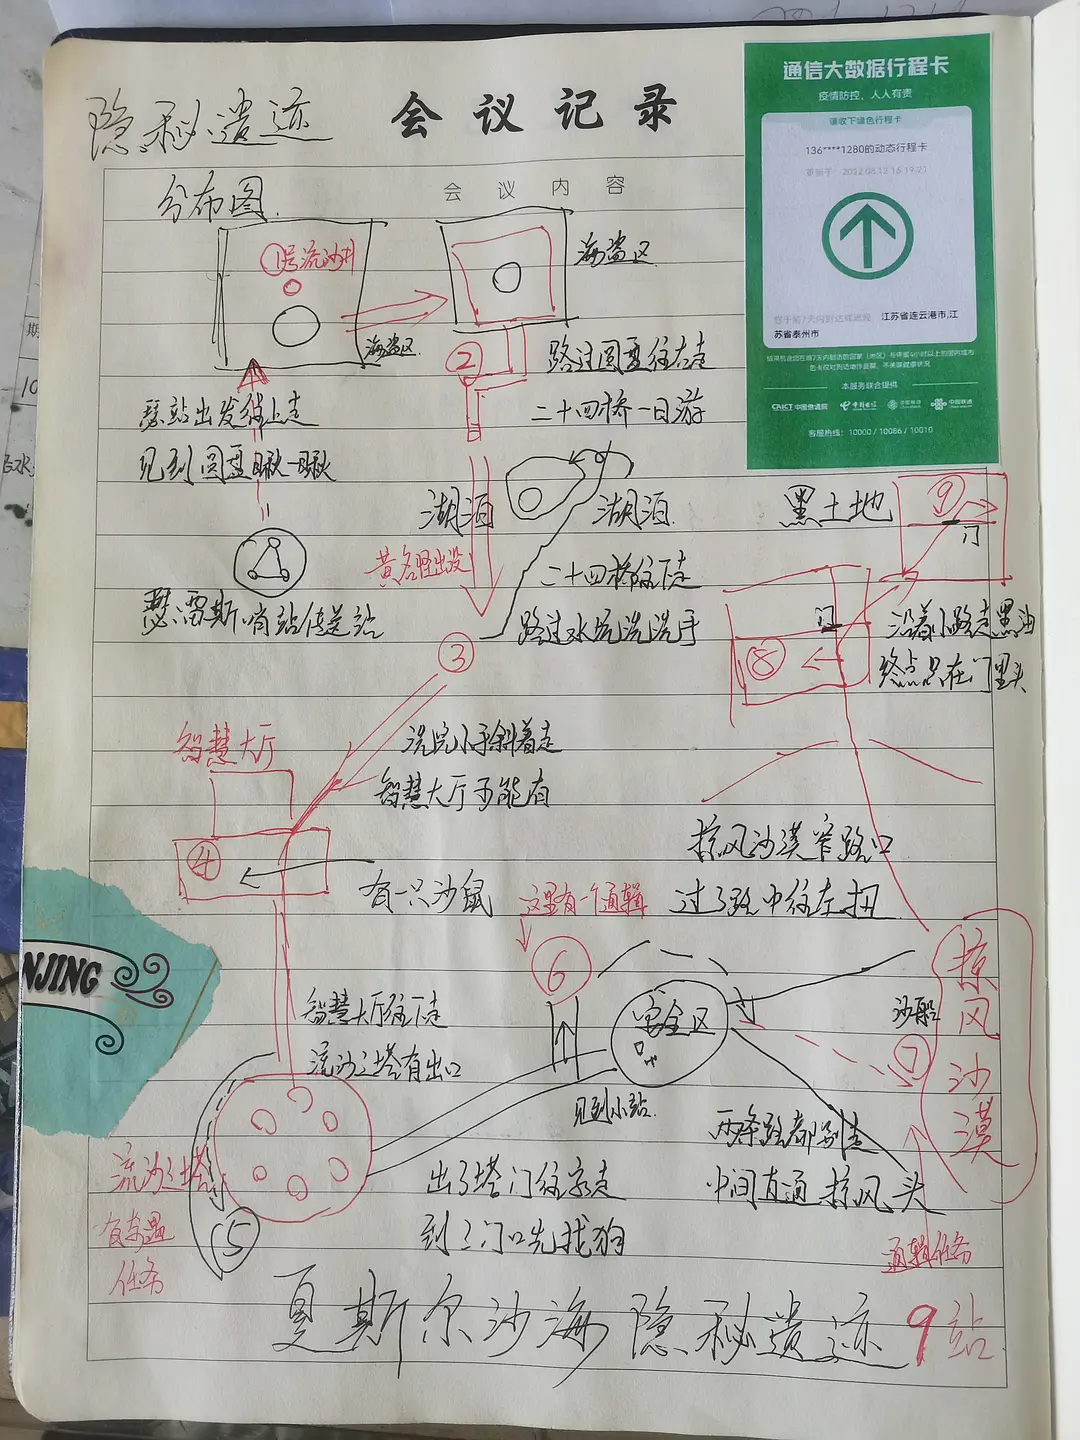 隐秘遗迹
会议记录
会议内容
分布图
①号流沙井
海盗区
海盗区
②
瑟站出发往上走
见到圆盘瞅一瞅
路过圆盘往右走
二十四桥一日游
瑟雷斯哨站传送站
湖泊
湖泊
黄名怪出没
二十四桥往下走
路过水坑洗洗手
③
黑土地
⑨
门
⑧
门
沿着小路走黑油
终点只在门里头
智慧大厅
④
洗完小手斜着走
智慧大厅不能有
有一只沙鼠
掠风沙漠窄路口
过了路中往左扭
这里有一个通辑
⑥
安全区
见到小站
沙船
⑦
掠风沙漠
智慧大厅往下走
流沙之塔有出口
流沙之塔
有奇遇
任务
⑤
出了塔门往家走
到了门口先找狗
两条路都别走
中间直通掠风头
通辑任务
夏斯尔沙海隐秘遗迹9站
NJING
通信大数据行程卡
疫情防控，人人有责
请收下绿色行程卡
136****1280的动态行程卡
更新于 2022.08.12 16:19:21
您于前7天内到达或途经 江苏省连云港市,江
苏省泰州市
本服务联合提供
CAICT 中国信通院 中国电信 中国移动 中国联通
客服热线：10000 / 10086 / 10010